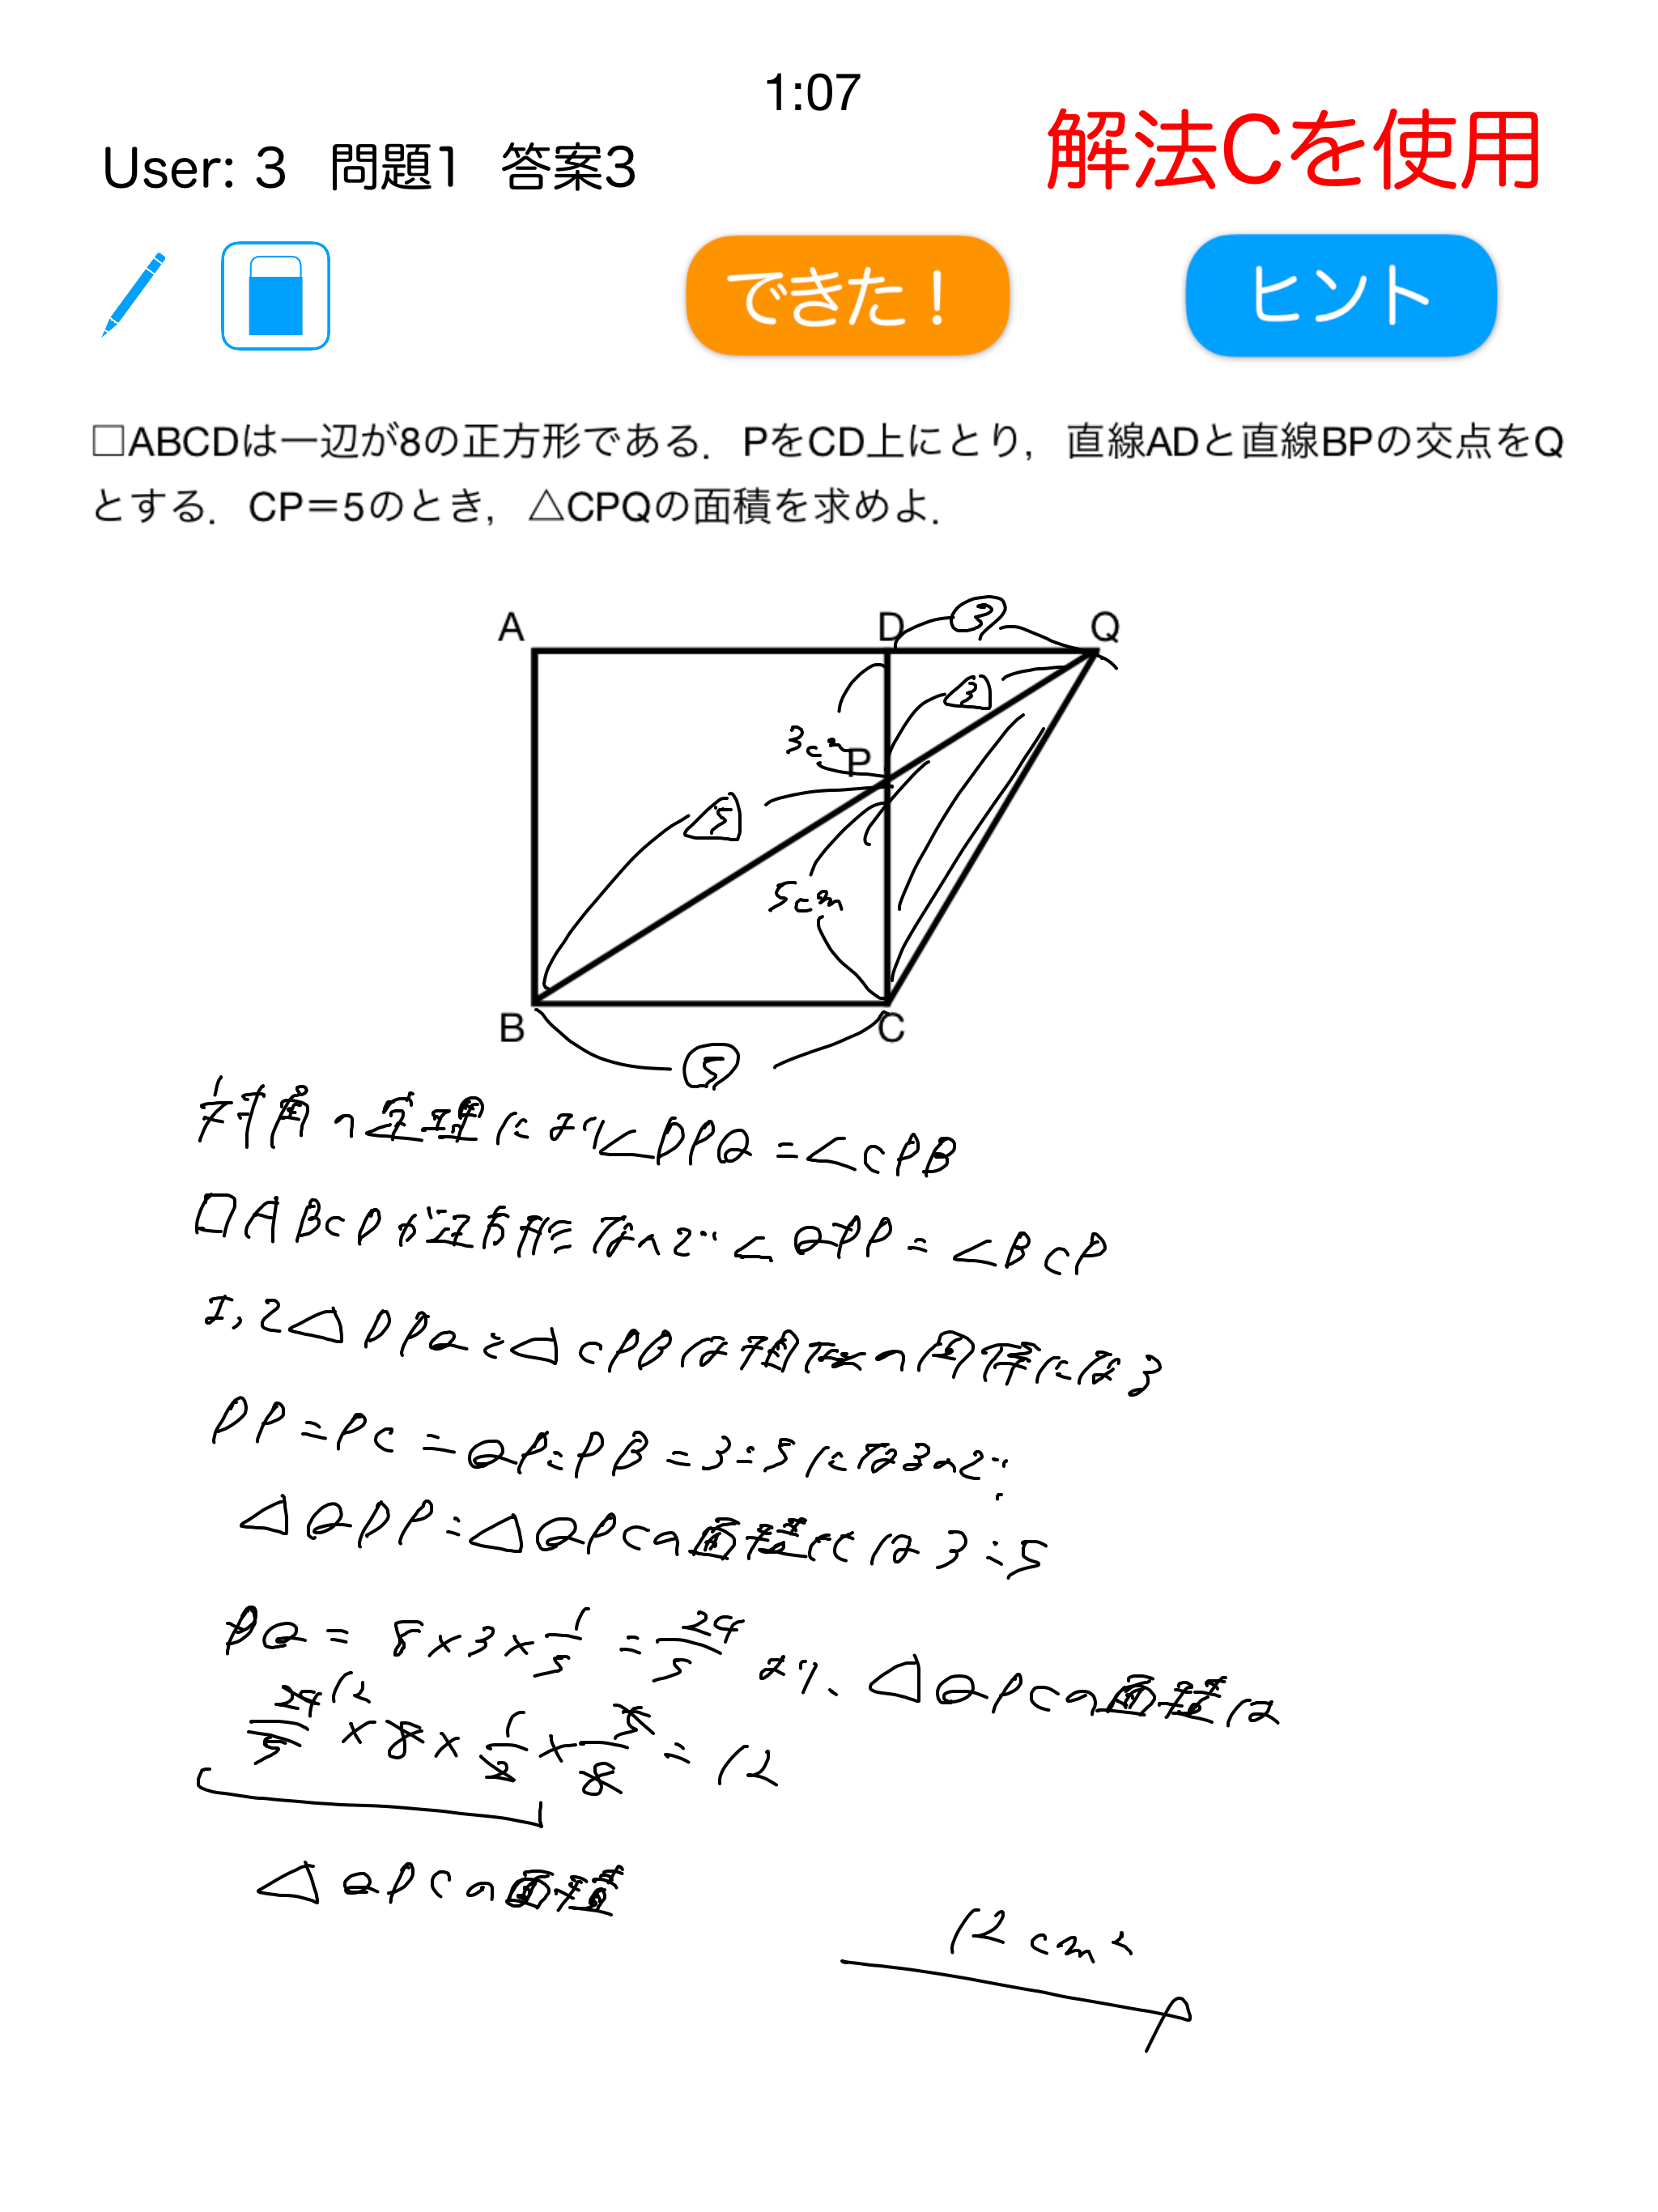 1:07
User: 3 問題1 答案3
解法Cを使用
できた！
ヒント
□ABCDは一辺が8の正方形である．PをCD上にとり，直線ADと直線BPの交点をQ
とする．CP＝5のとき，△CPQの面積を求めよ．
A D ③ Q
3
3cm P
5
5cm
B C
⑤
対角の定理により∠DPQ=∠CPB
□ABCDが正方形なので∠QDP=∠BCP
よって△DPQと△CPBは相似の関係になる
DP:PC=QP:PB=3:5になるので
△QDP:△QPCの面積比は3:5
DQ=8×3×1/5=24/5より、△QPCの面積は
24/5×8×1/2×5/8=12
12
△QPCの面積
12cm²